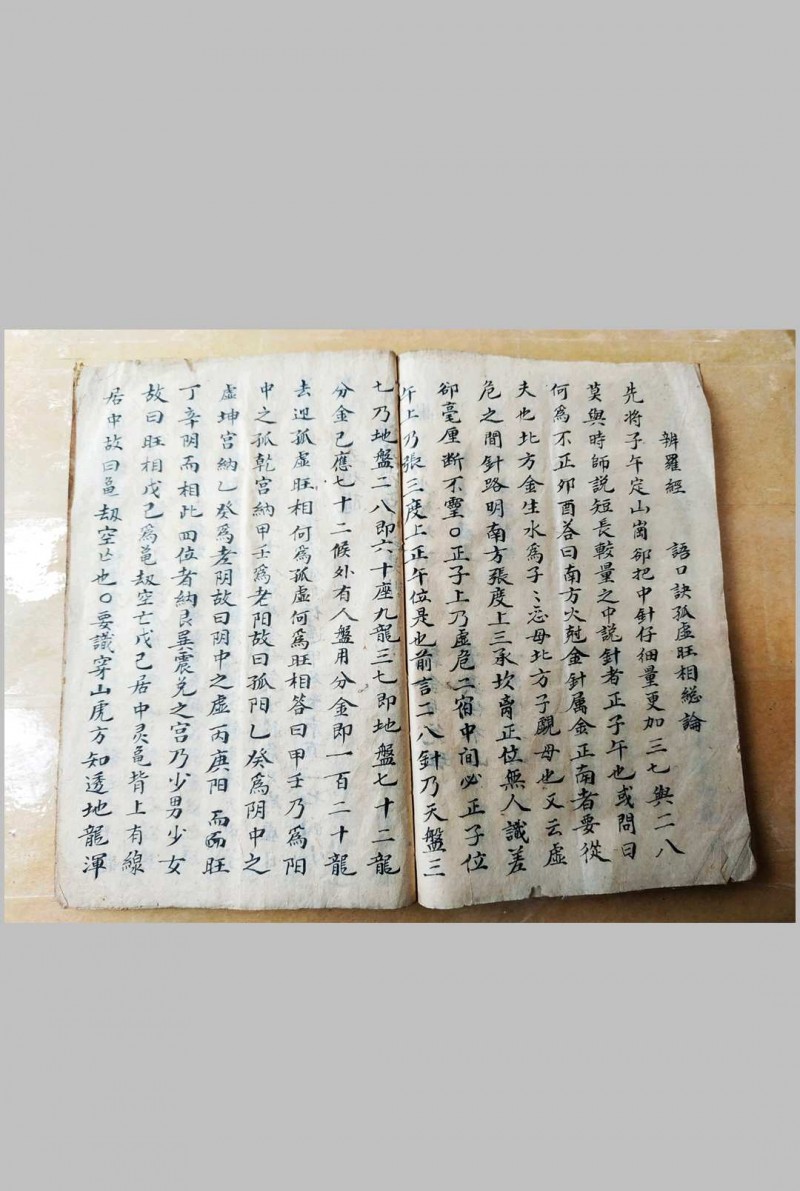 辨羅經 語口訣孤虛旺相總論
先將子午定山崗卻把中針仔細量更加三七與二八
莫與時師說短長較量之中説針者正子午也或問曰
何為不正卯酉答曰南方火尅金針属金正南者要從
夫也北方金生水為子〻忌母北方子覷母也又云虛
危之間針路明南方張度上三承坎离正位無人識差
卻毫厘断不靈〇正子上乃虛危二宿中间必正子位
午上乃張三度上正午位是也前言二八針乃天盤三
七乃地盤二八即六十座九龍三七即地盤七十二龍
分金已應七十二候外有人盤用分金即一百二十龍
去迎孤虛旺相何為孤虛何為旺相答曰甲壬乃為陽
中之孤乾宮納甲壬為老阳故曰孤阳乚癸為阴中之
虛坤宮納乚癸為老阴故曰阴中之虛丙庚阳而旺
丁辛阴而相此四位者納艮巽震兑之宮乃少男少女
故曰旺相戊己為龟刼空亡戊己居中灵龟背上有線
居中故曰龟刼空亡也〇要識穿山虎方知透地龍渾